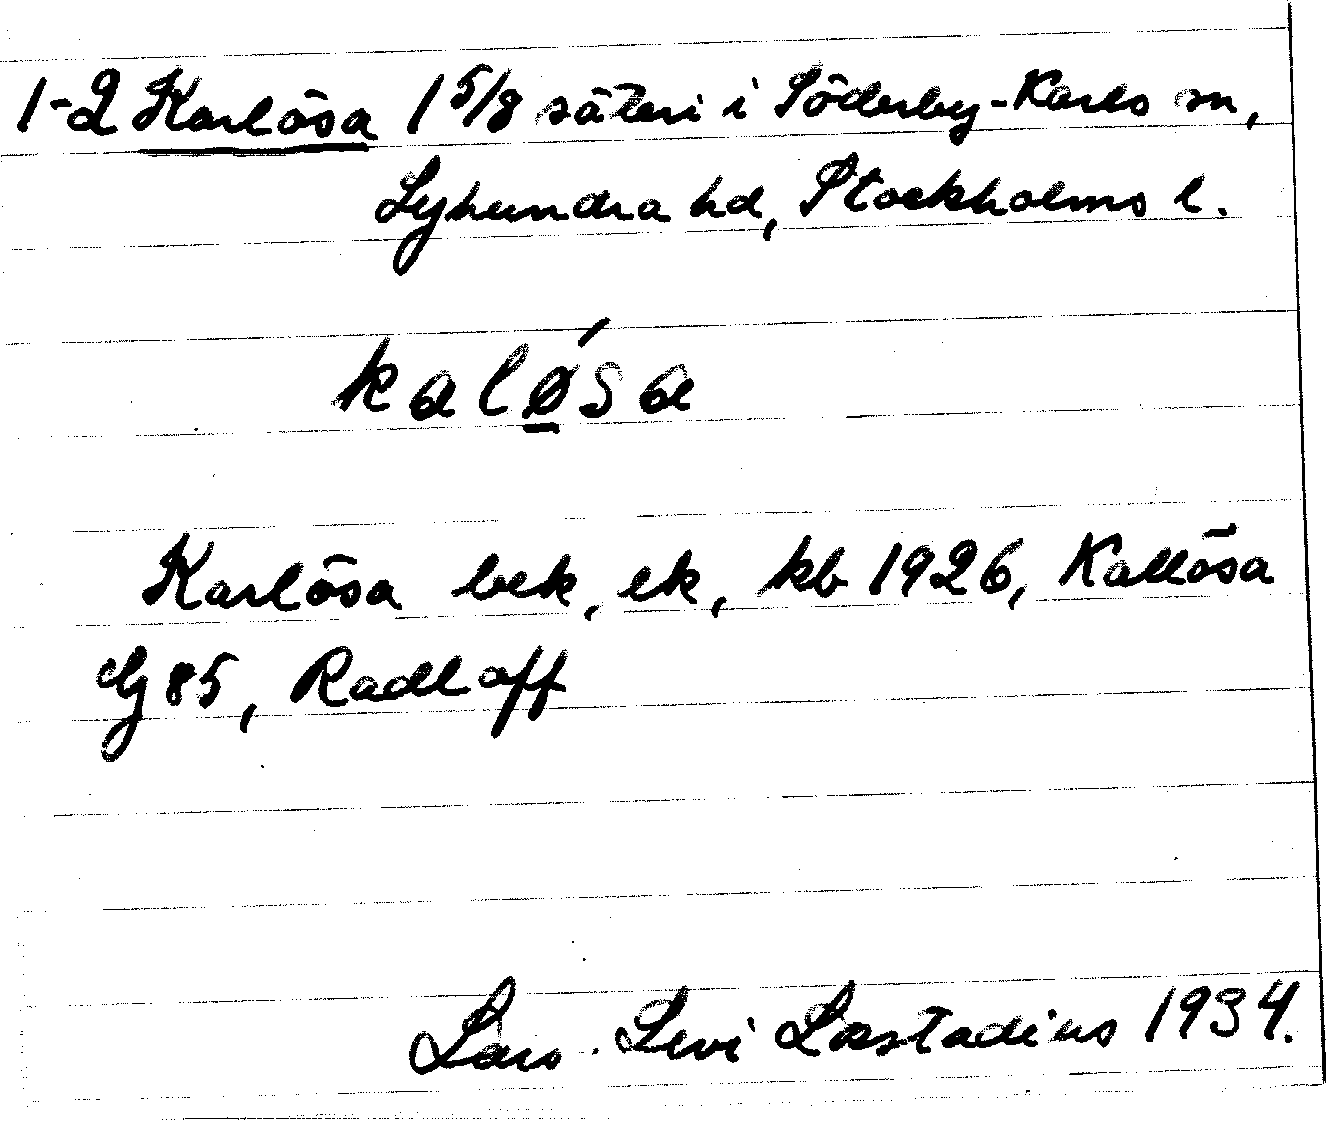 1-2 Karlösa 1 5/8 säteri i Söderby-Karls sn,
Lyhundra hd, Stockholms l.
kalǿ̲sa
Karlösa bek, ek, kb 1926, Kallösa
Gj 85, Radloff
Lars-Levi Læstadius 1934.